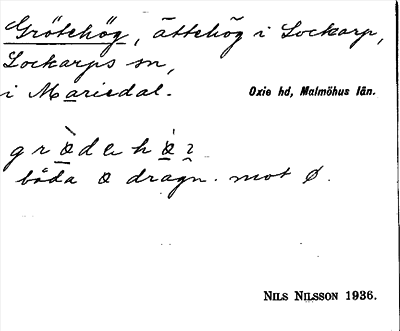 Grötehög, ättehög i Lockarp,
Lockarps sn,
i Mariedal.
Oxie hd, Malmöhus län.
båda a dragn. mot ø.
NILS NILSSON 1936.